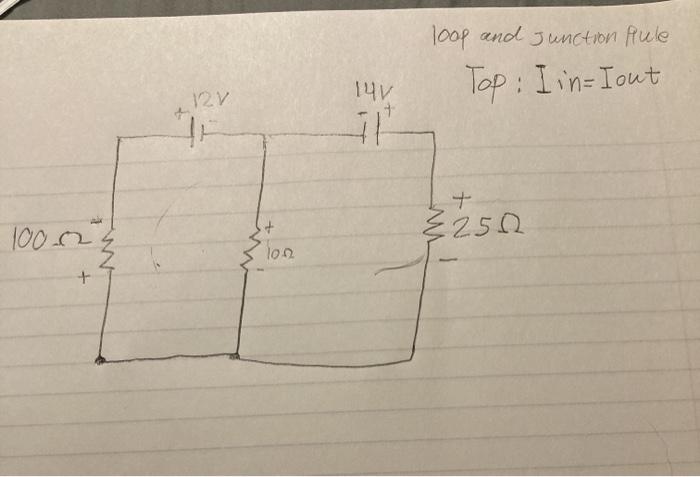 loop and Junction Rule
Top: I in = I out
14V
+ 12V -
- +
100Ω - +
+ 10Ω -
+ 25Ω -